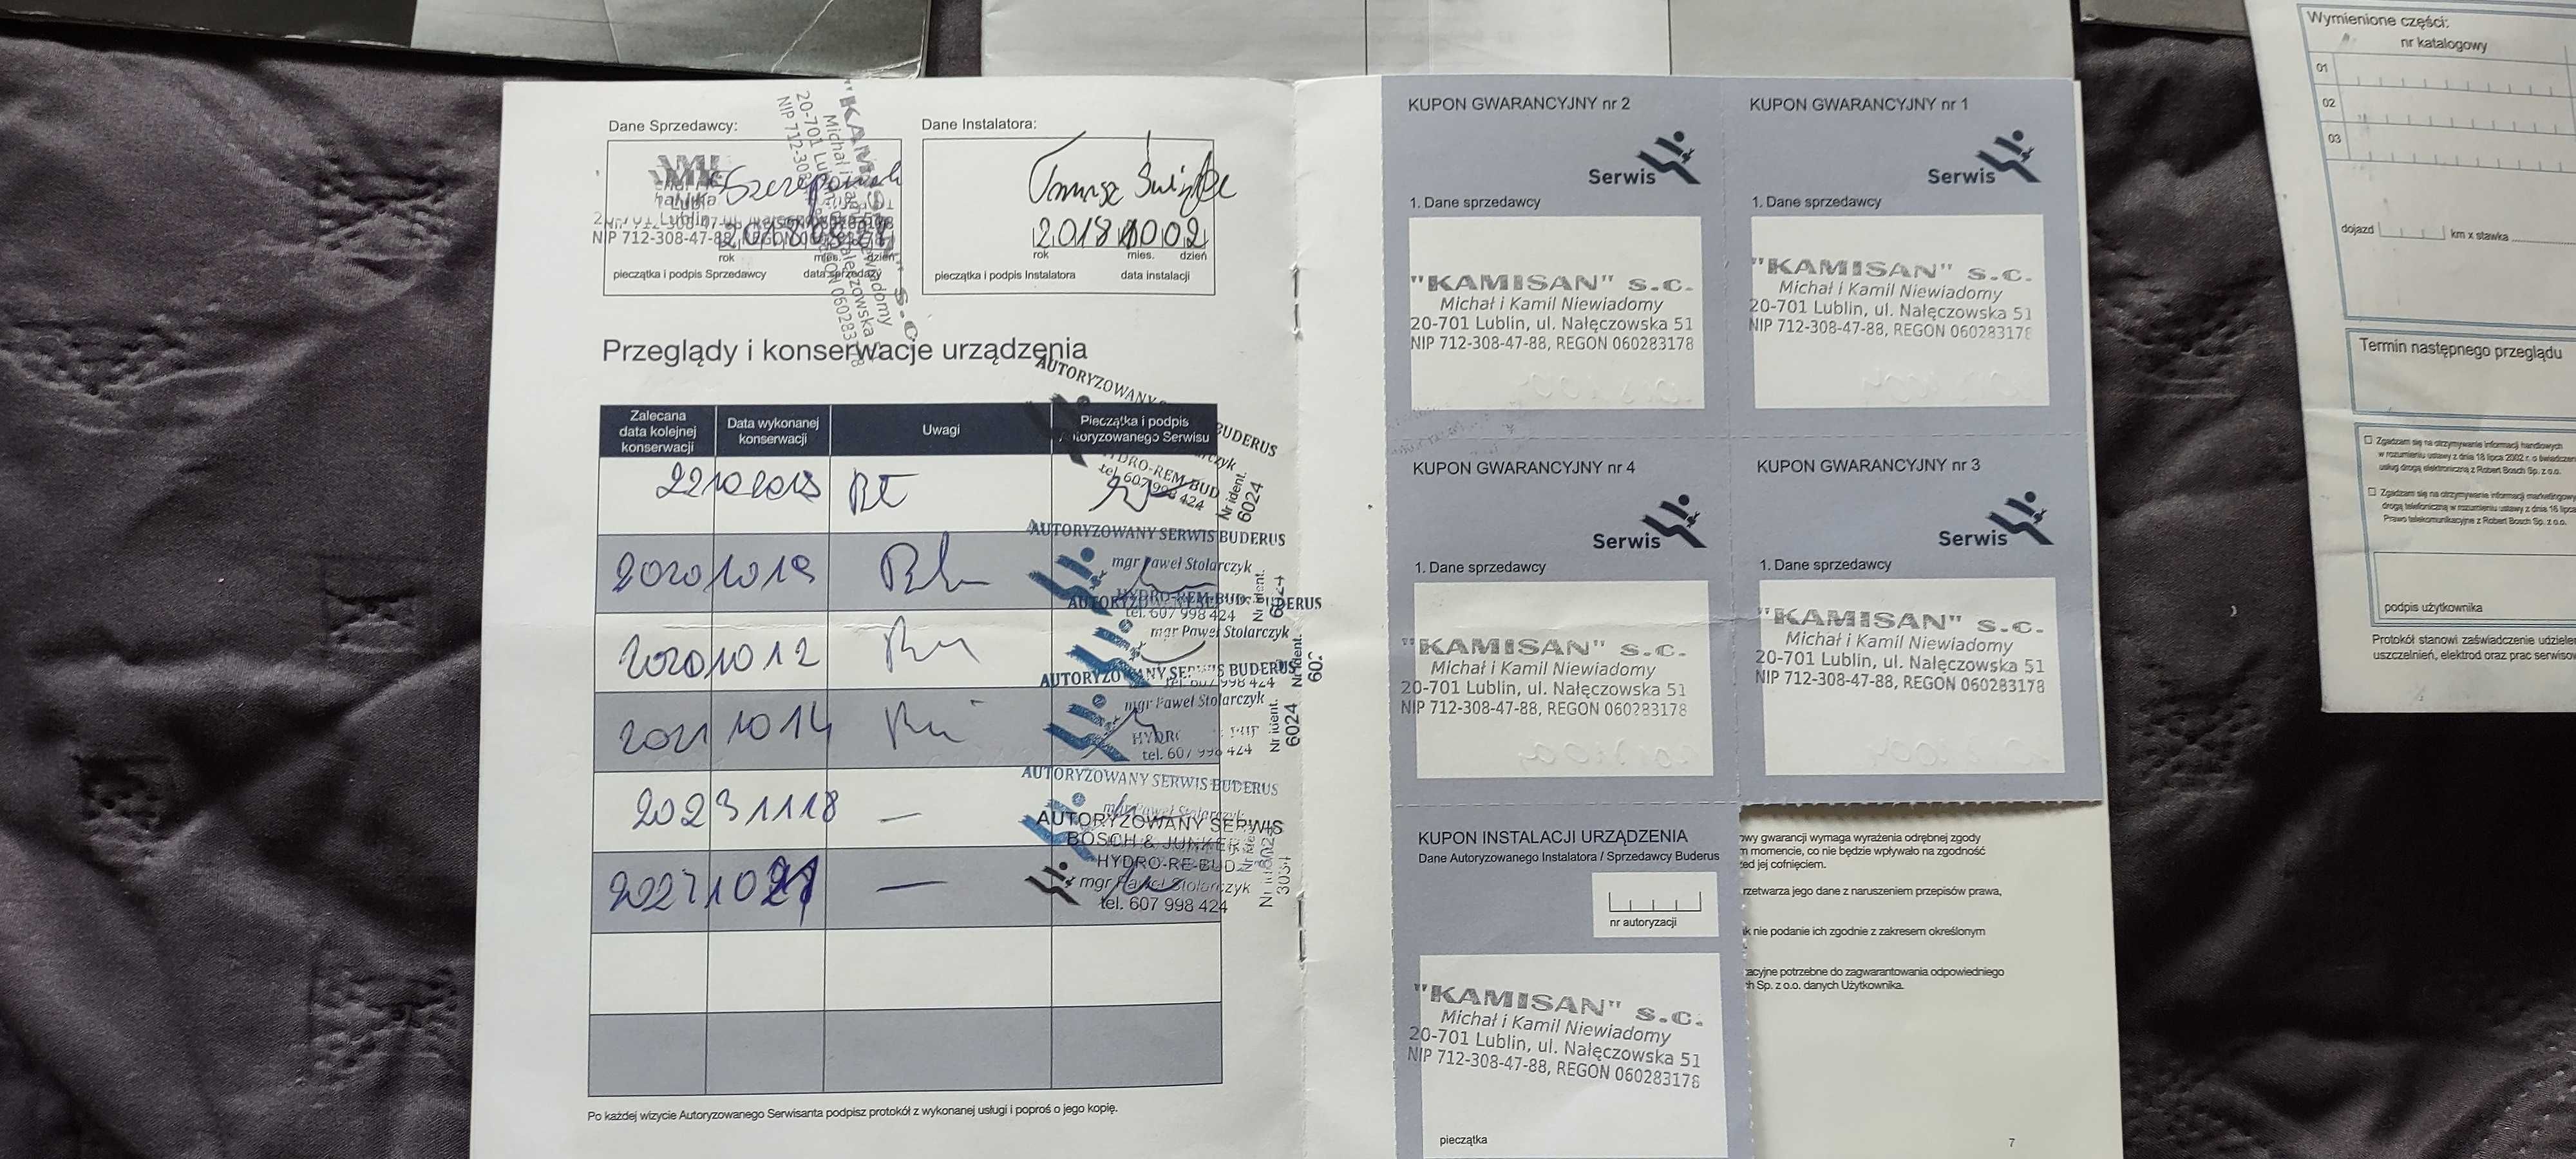 Dane Sprzedawcy:
20-701 Lublin
NIP 712-308-47-88, REGON
rok mies. dzień
pieczątka i podpis Sprzedawcy data sprzedaży
"KAMISAN" s.c.
Michał i Kamil Niewiadomy
20-701 Lublin, ul. Nałęczowska 51
NIP 712-308-47-88, REGON 060283178
Dane Instalatora:
2018 10 02
rok mies. dzień
pieczątka i podpis Instalatora data instalacji
Przeglądy i konserwacje urządzenia
Zalecana
data kolejnej
konserwacji
Data wykonanej
konserwacji
Uwagi
Pieczątka i podpis
Autoryzowanego Serwisu
AUTORYZOWANY BUDERUS
HYDRO-REM-BUD
tel. 607 998 424
Nr ident.
6024
2020 10 19
AUTORYZOWANY SERWIS BUDERUS
mgr Paweł Stolarczyk
HYDRO-REM-BUD
tel. 607 998 424
Nr ident.
2020 10 12
AUTORYZOWANY BUDERUS
mgr Paweł Stolarczyk
tel. 607 998 424
Nr ident.
2021 10 14
AUTORYZOWANY SERWIS BUDERUS
mgr Paweł Stolarczyk
tel. 607 998 424
Nr ident.
6024
2023 11 18 —
AUTORYZOWANY SERWIS BUDERUS
mgr Paweł Stolarczyk
—
AUTORYZOWANY SERWIS
BOSCH & JUNKERS
HYDRO-RE-BUD
mgr Paweł Stolarczyk
tel. 607 998 424
Po każdej wizycie Autoryzowanego Serwisanta podpisz protokół z wykonanej usługi i poproś o jego kopię.
KUPON GWARANCYJNY nr 2
Serwis
1. Dane sprzedawcy
"KAMISAN" s.c.
Michał i Kamil Niewiadomy
20-701 Lublin, ul. Nałęczowska 51
NIP 712-308-47-88, REGON 060283178
KUPON GWARANCYJNY nr 1
Serwis
1. Dane sprzedawcy
"KAMISAN" s.c.
Michał i Kamil Niewiadomy
20-701 Lublin, ul. Nałęczowska 51
NIP 712-308-47-88, REGON 060283178
KUPON GWARANCYJNY nr 4
Serwis
1. Dane sprzedawcy
"KAMISAN" s.c.
Michał i Kamil Niewiadomy
20-701 Lublin, ul. Nałęczowska 51
NIP 712-308-47-88, REGON 060283178
KUPON GWARANCYJNY nr 3
Serwis
1. Dane sprzedawcy
"KAMISAN" s.c.
Michał i Kamil Niewiadomy
20-701 Lublin, ul. Nałęczowska 51
NIP 712-308-47-88, REGON 060283178
KUPON INSTALACJI URZĄDZENIA
Dane Autoryzowanego Instalatora / Sprzedawcy Buderus
nr autoryzacji
"KAMISAN" s.c.
Michał i Kamil Niewiadomy
20-701 Lublin, ul. Nałęczowska 51
NIP 712-308-47-88, REGON 060283178
pieczątka
gwarancji wymaga wyrażenia odrębnej zgody
momencie, co nie będzie wpływało na zgodność
jej cofnięciem.
rzetwarza jego dane z naruszeniem przepisów prawa,
nie podanie ich zgodnie z zakresem określonym
potrzebne do zagwarantowania odpowiedniego
Sp. z o.o. danych Użytkownika.
7
Wymienione części:
nr katalogowy
01
02
03
dojazd km x stawka
Termin następnego przeglądu
Zgadzam się na otrzymywanie informacji handlowych
w rozumieniu ustawy z dnia 18 lipca 2002 r. o
usług drogą elektroniczną z Robert Bosch Sp. z o.o.
Zgadzam się na otrzymywanie informacji
drogą telefoniczną w rozumieniu ustawy z dnia 16 lipca
Prawo telekomunikacyjne z Robert Bosch Sp. z o.o.
podpis użytkownika
Protokół stanowi zaświadczenie
uszczelnień, elektrod oraz prac